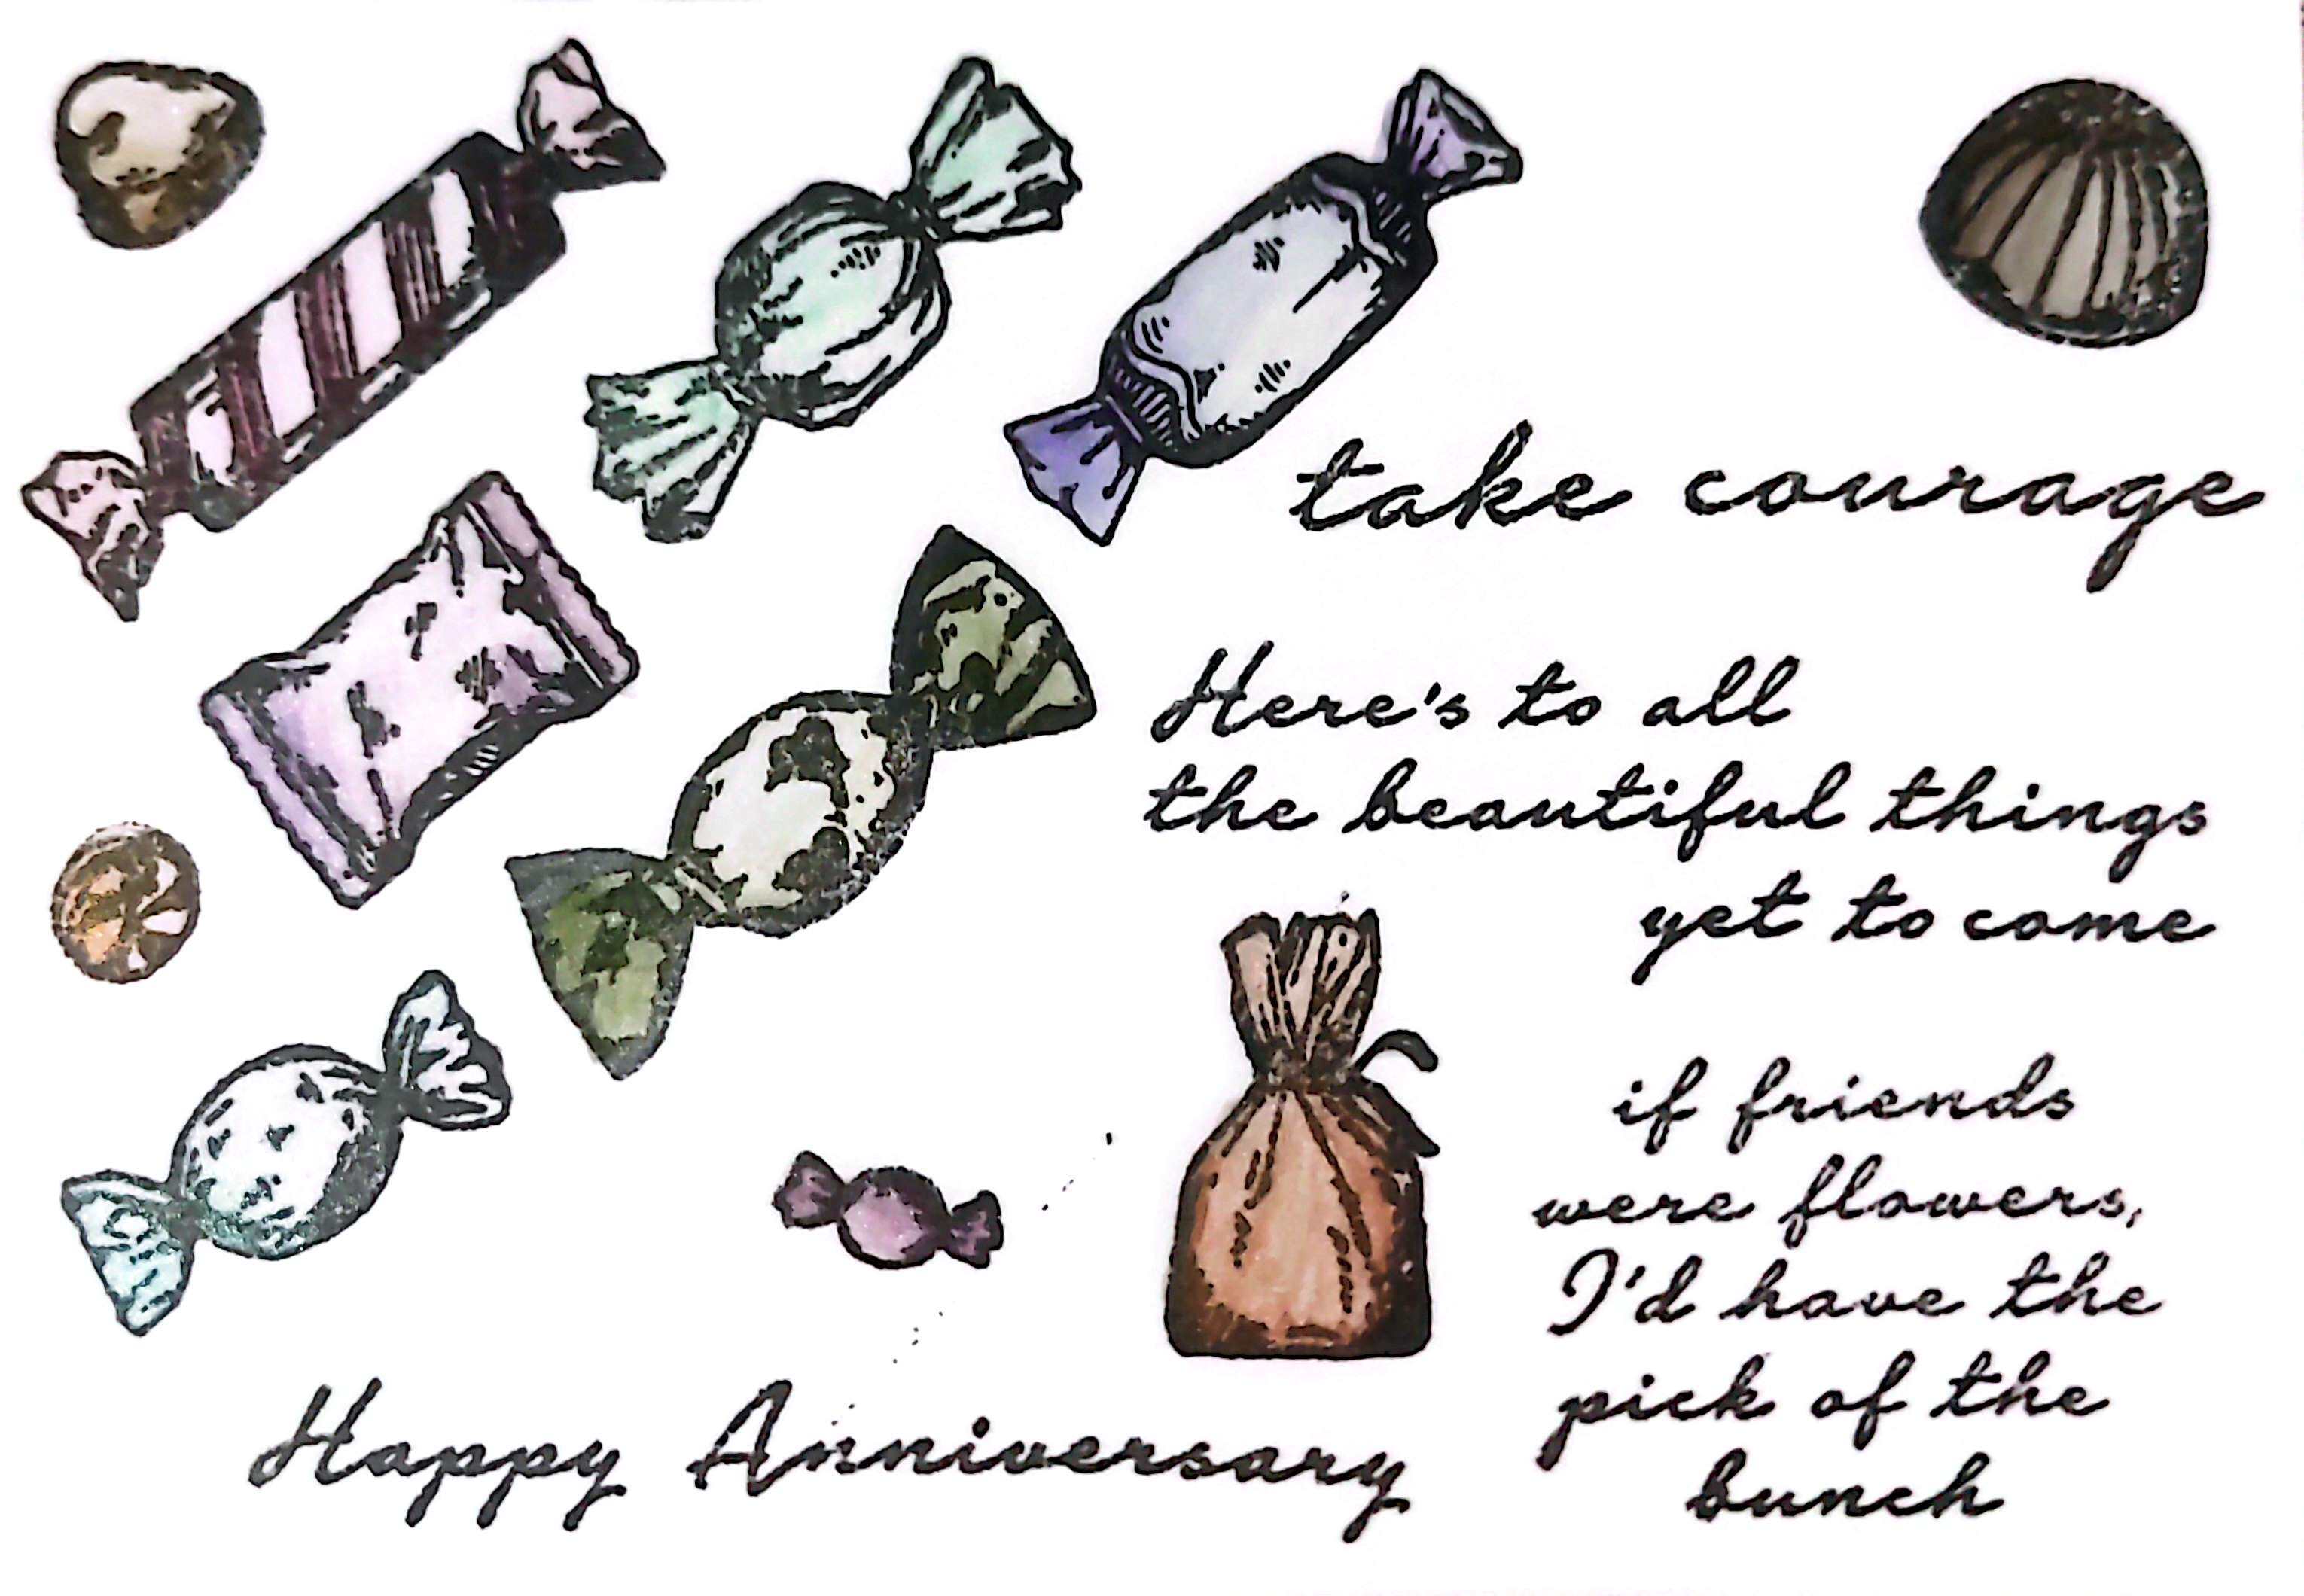 take courage
Here's to all
the beautiful things
yet to come
if friends
were flowers,
I'd have the
pick of the
bunch
Happy Anniversary